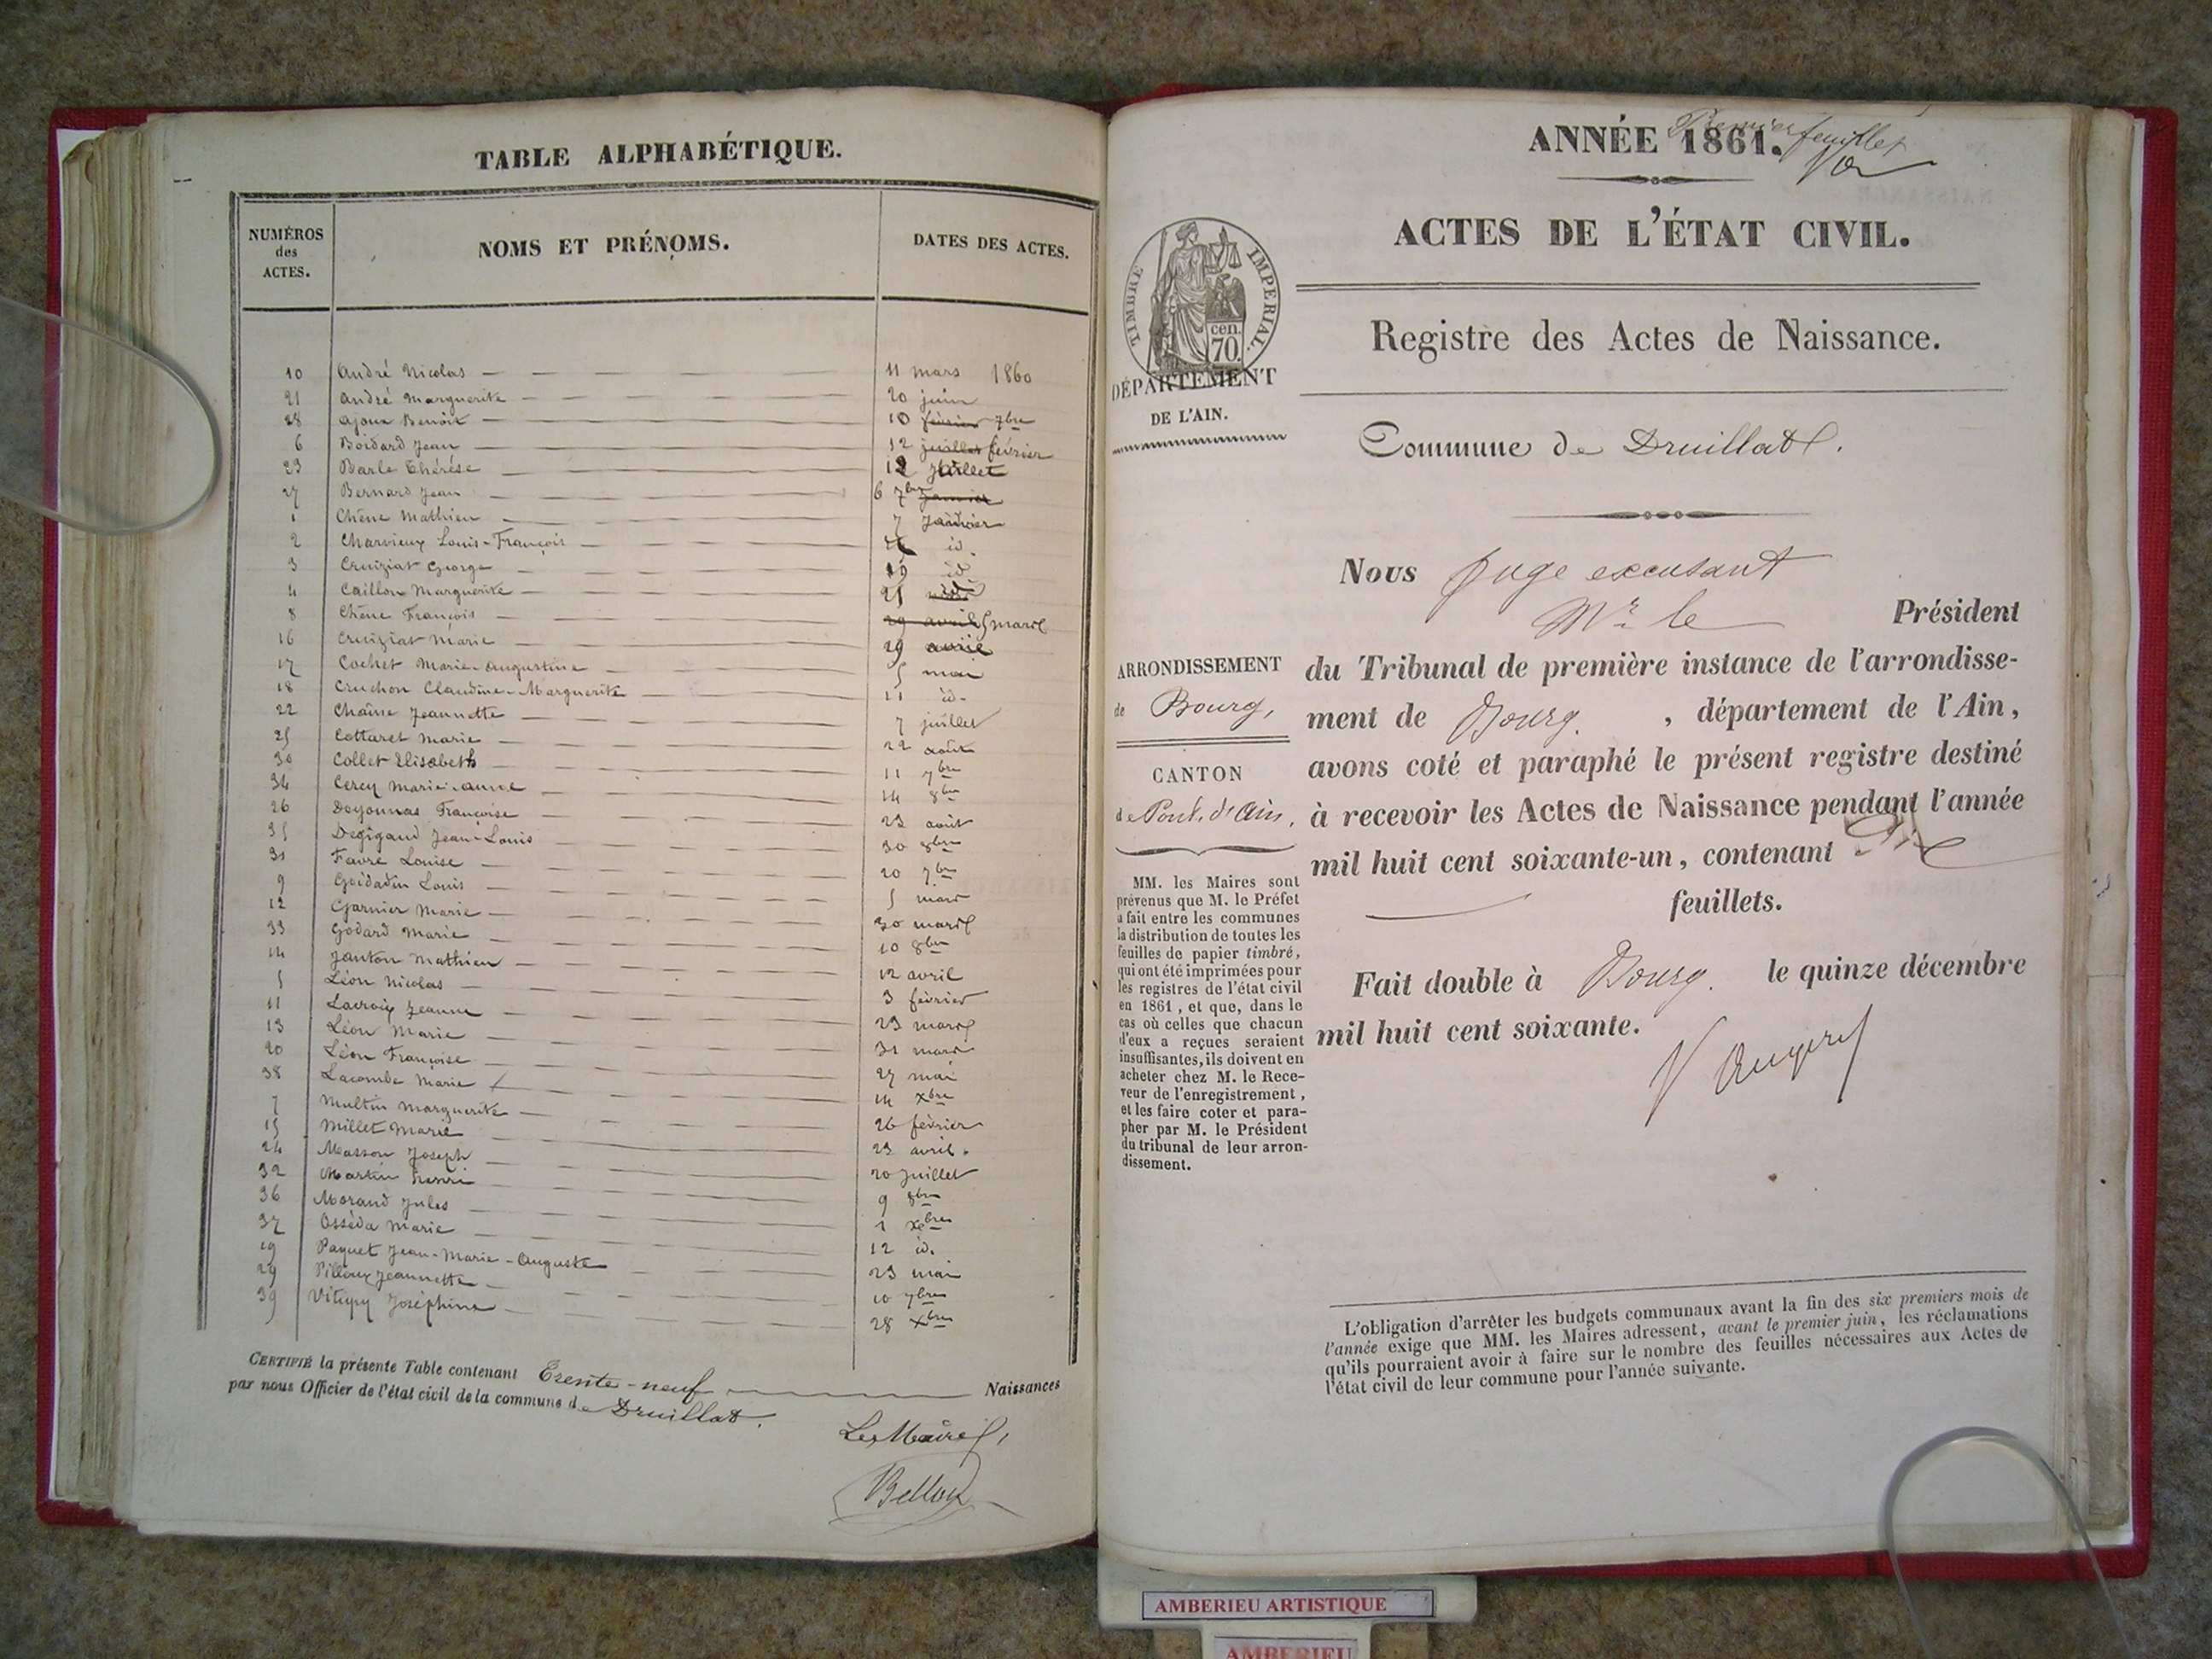 TABLE ALPHABÉTIQUE.
NUMÉROS des ACTES.
NOMS ET PRÉNOMS.
DATES DES ACTES.
10 André Nicolas 11 mars 1860
21 André Marguerite 20 juin
28 Ajoux Benoit 10 février 7bre
6 Boidard Jean 12 juillet février
23 Barle Thérèse 12 Juillet
27 Bernard Jean 6 7bre janvier
1 Chêne Mathieu 7 Janvier
2 Charvieux Louis-François id.
3 Cruiziat George 19 id
4 Caillon Marguerite 21 id
8 Chêne François 29 avril 5 mars
16 Cruiziat Marie 29 avril
17 Cochet Marie-Augustine 5 mai
18 Cruchon Claudine-Marguerite 11 id.
22 Chaîne Jeannette 7 juillet
25 Cottaret Marie 22 août
30 Collet Elisabeth 11 7bre
34 Cercy Marie-Anne 14 8bre
26 Doyonnas Françoise 23 août
35 Degigaud Jean-Louis 30 8bre
31 Favre Louise 20 7bre
9 Goidadin Louis 5 mars
12 Garnier Marie 30 mars
33 Godard Marie 10 8bre
14 Janton Mathieu 12 avril
5 Léon Nicolas 3 février
11 Lacroix Jeanne 23 mars
13 Léon Marie 31 mars
20 Léon Françoise 27 mai
38 Lacombe Marie 14 Xbre
7 Multin Marguerite 26 février
15 Millet Marie 23 avril.
24 Masson Joseph 20 Juillet
32 Martin henri 9 8bre
36 Morand Jules 1 Xbre
37 Osséda Marie 12 id.
19 Paquet Jean-Marie-Auguste 23 mai
29 Pilloux Jeannette 10 7bre
39 Vitupy Joséphine 28 Xbre
CERTIFIÉ la présente Table contenant Trente-neuf Naissances
par nous Officier de l'état civil de la commune de Druillat.
Le Maire,
Bellon
Premier feuillet
ANNÉE 1861.
ACTES DE L'ÉTAT CIVIL.
TIMBRE IMPERIAL.
cen. 70.
Registre des Actes de Naissance.
DÉPARTEMENT
DE L'AIN.
Commune de Druillat.
Nous Juge excusant
Mr le Président
ARRONDISSEMENT
de Bourg,
CANTON
de Pont-d'Ain.
du Tribunal de première instance de l'arrondisse-
ment de Bourg. , département de l'Ain,
avons coté et paraphé le présent registre destiné
à recevoir les Actes de Naissance pendant l'année
mil huit cent soixante-un, contenant Dix
feuillets.
Fait double à Bourg. le quinze décembre
mil huit cent soixante.
MM. les Maires sont
prévenus que M. le Préfet
a fait entre les communes
la distribution de toutes les
feuilles de papier timbré,
qui ont été imprimées pour
les registres de l'état civil
en 1861, et que, dans le
cas où celles que chacun
d'eux a reçues seraient
insuffisantes, ils doivent en
acheter chez M. le Rece-
veur de l'enregistrement,
et les faire coter et para-
pher par M. le Président
du tribunal de leur arron-
dissement.
L'obligation d'arrêter les budgets communaux avant la fin des six premiers mois de
l'année exige que MM. les Maires adressent, avant le premier juin, les réclamations
qu'ils pourraient avoir à faire sur le nombre des feuilles nécessaires aux Actes de
l'état civil de leur commune pour l'année suivante.
AMBERIEU ARTISTIQUE
AMBERIEU